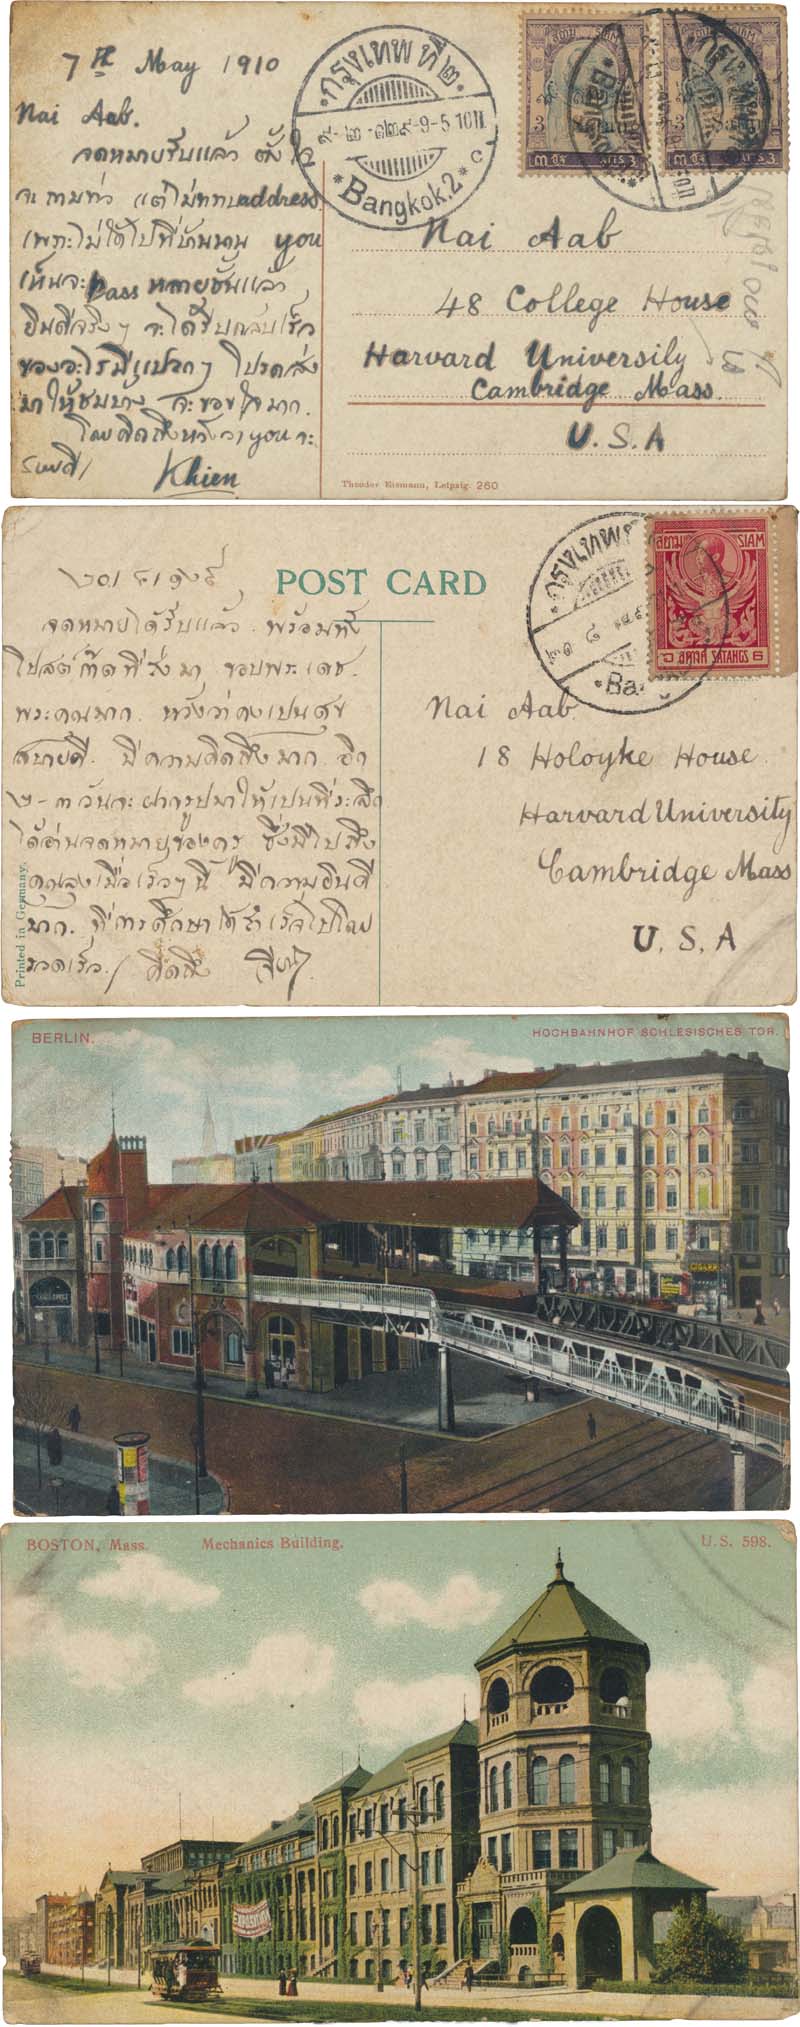 7th May 1910
Nai Aab.
จดหมายรับแล้ว ตั้งใจ
จะถามข่าว แต่ไม่ทราบ address
เพราะไม่ได้ไปที่บ้าน you
เห็นจะ pass หลายชั้นแล้ว
ยินดีจริงๆ จะได้รีบกลับเร็ว
ของอะไรมีแปลกๆ โปรดส่ง
มาให้ชมบ้าง จะขอบใจมาก.
โดยคิดถึงหวังว่า you จะ
สบายดี/ Khien
กรุงเทพ ที่ ๒
๙-๒-๑๒๙-9-5 10
Bangkok.2
C
สยาม SIAM
3
๓ อัฐ ATTS 3
สยาม SIAM
3
๓ อัฐ ATTS 3
Nai Aab
48 College House
Harvard University
Cambridge Mass.
U.S.A
Theodor Eismann, Leipzig. 260
POST CARD
จดหมายได้รับแล้ว พร้อมทั้ง
โปสต์ก๊าดที่ส่งมา ขอบพระเดช
พระคุณมาก หวังว่าคงเป็นสุข
สบายดี. มีความคิดถึงมาก อีก
๒-๓ วันจะฝากรูปมาให้เป็นที่ระลึก
ได้อ่านจดหมายของ ซึ่งมีไปถึง
คุณลุงเมื่อเร็วๆนี้ มีความยินดี
มาก. ที่การศึกษาได้สำเร็จไปโดย
รวดเร็ว/ คิดถึง
Printed in Germany.
กรุงเทพ
สยาม SIAM
๖ สตางค์ SATANGS 6
Nai Aab
18 Holoyke House
Harvard University
Cambridge Mass
U.S,A
BERLIN. HOCHBAHNHOF SCHLESISCHES TOR.
BOSTON, Mass. Mechanics Building. U.S. 598.